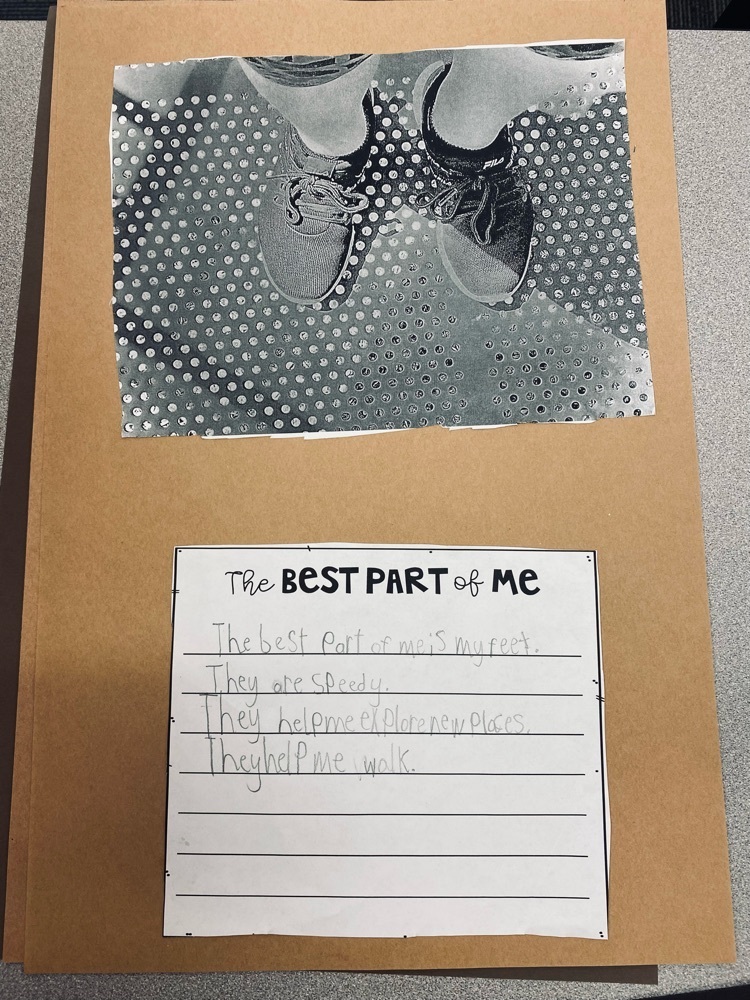 The BEST PART of ME
The best part of me is my feet.
They are speedy.
They help me explore new places.
They help me walk.